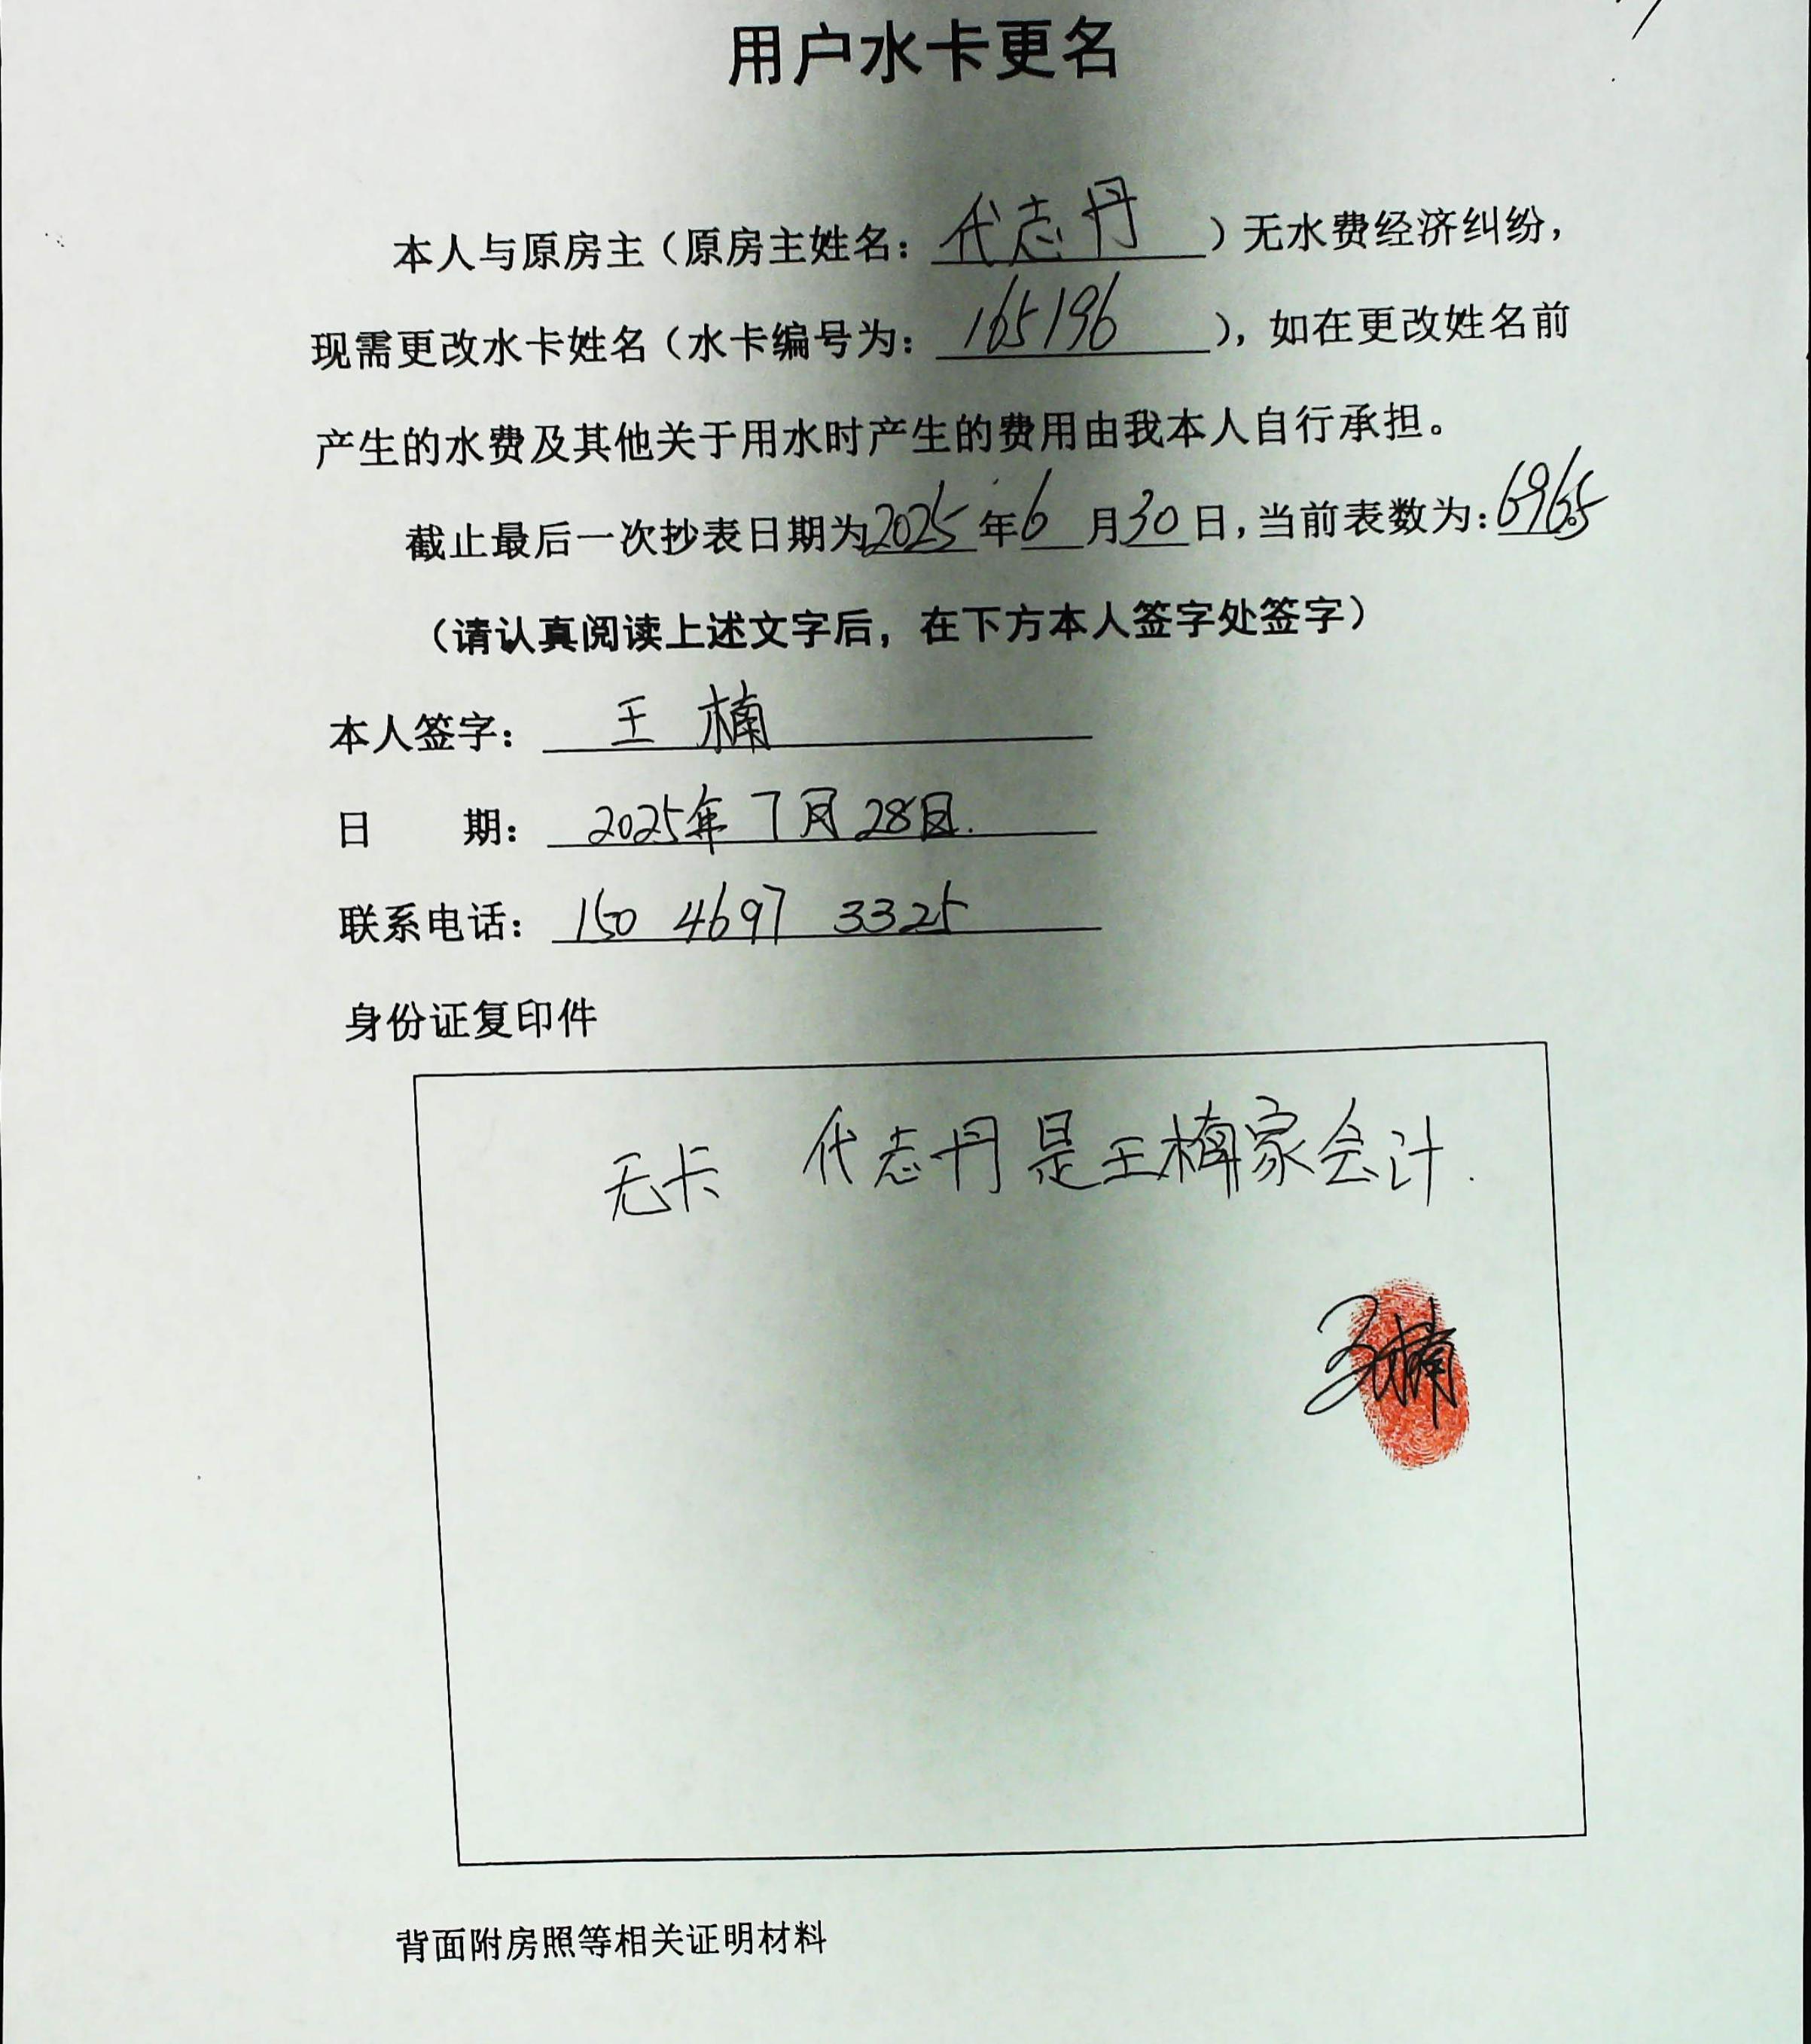 用户水卡更名
本人与原房主（原房主姓名：代志丹）无水费经济纠纷，
现需更改水卡姓名（水卡编号为：165196），如在更改姓名前
产生的水费及其他关于用水时产生的费用由我本人自行承担。
截止最后一次抄表日期为2025年6月30日，当前表数为：6965
（请认真阅读上述文字后，在下方本人签字处签字）
本人签字：王楠
日 期：2025年7月28日.
联系电话：150 4697 3325
身份证复印件
无卡 代志丹是王楠家会计.
王楠
背面附房照等相关证明材料